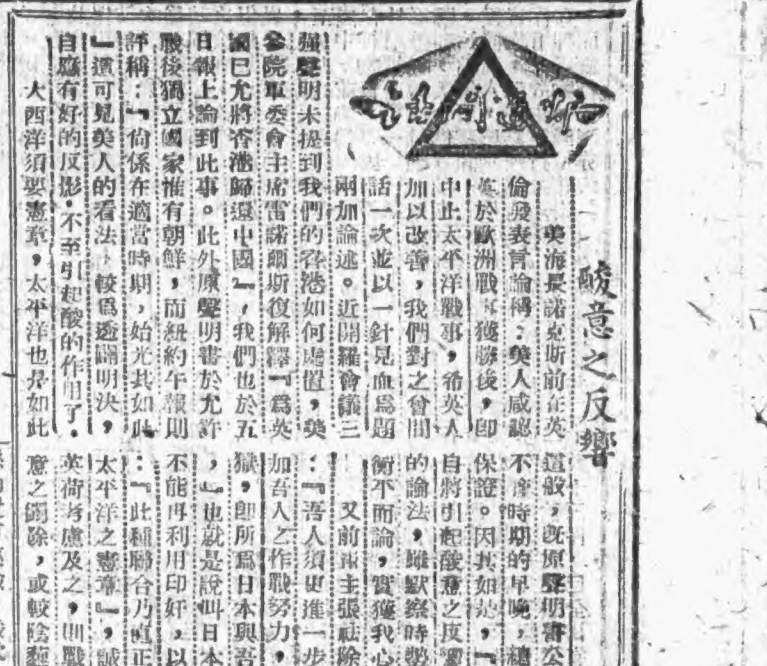 酸意之反響
美海長諾克斯前在英
倫發表言論稱：美人咸認
英於歐洲戰事獲勝後，卽
中止太平洋戰事，希英人
加以改善，我們對之曾間
話一次並以一針見血爲題
兩加論述。近開羅會議三
强聲明未提到我們的香港如何處置，美
參院軍委會主席雷諾爾斯復解釋『爲英
國已允將香港歸還中國』，我們也於五
日報上論到此事。此外原聲明書於允許
戰後獨立國家惟有朝鮮，而紐約午報則
評稱：『尙係在適當時期，始允其如此
』這可見美人的看法，較爲透闢明決，
自應有好的反影．不至引起酸的作用了．
大西洋須要憲章，太平洋也是如此
這般，旣原聲明書公
不會時期的早晚，總
保證。因其如是，『
自將引起酸意之反響
的論法，雖默察時勢
衡平而論，實獲我心
又前兩主張祛除
：『吾人須更進一步
加吾人之作戰努力，
獄，卽所爲日本與吾
，』也就是說叫日本
不能再利用印奸，以
：『此種聯合乃眞正
太平洋之憲章』，誠
英荷考慮及之，則戰
意之闢除，或較陰霾